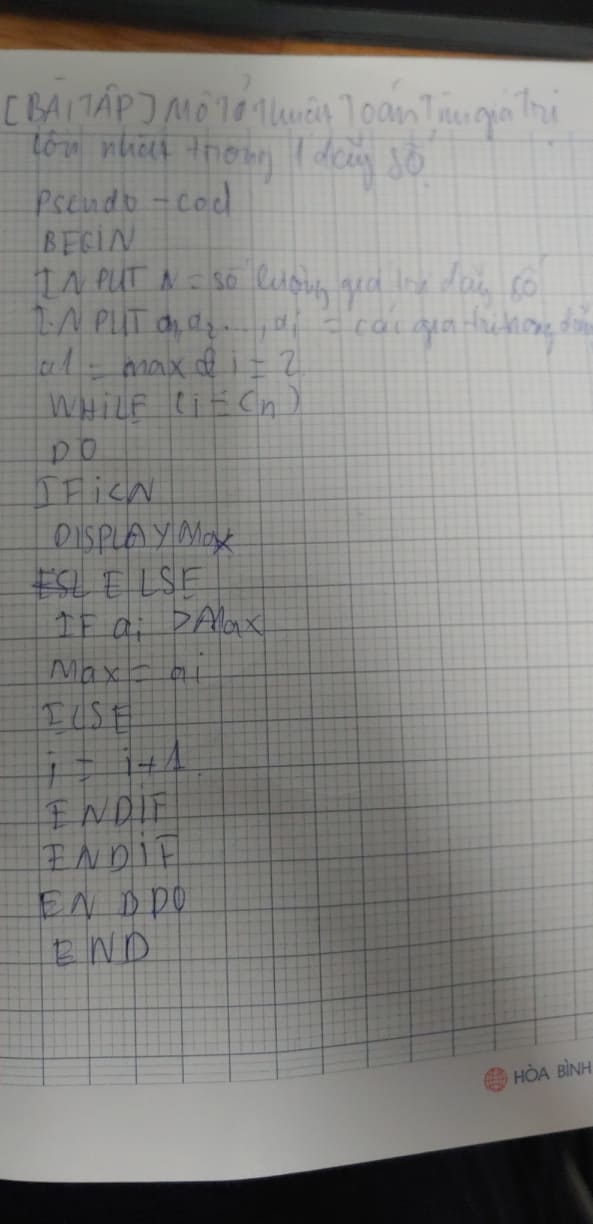 [BÀI TẬP] Mô Tả thuật Toán Tìm giá Trị
lớn nhất trong 1 dãy số
Pseudo - cod
BEGIN
INPUT N = số lượng giá trị dãy số
INPUT a1, a2 ..., ai = các giá trị trong dãy
a1 = max & i = 2
WHILE (i = <n)
DO
IF i<N
DISPLAY Max
ELSE
IF ai > Max
Max = ai
ILSE
i = i+1
ENDIF
ENDIF
ENDDO
END
HÒA BÌNH